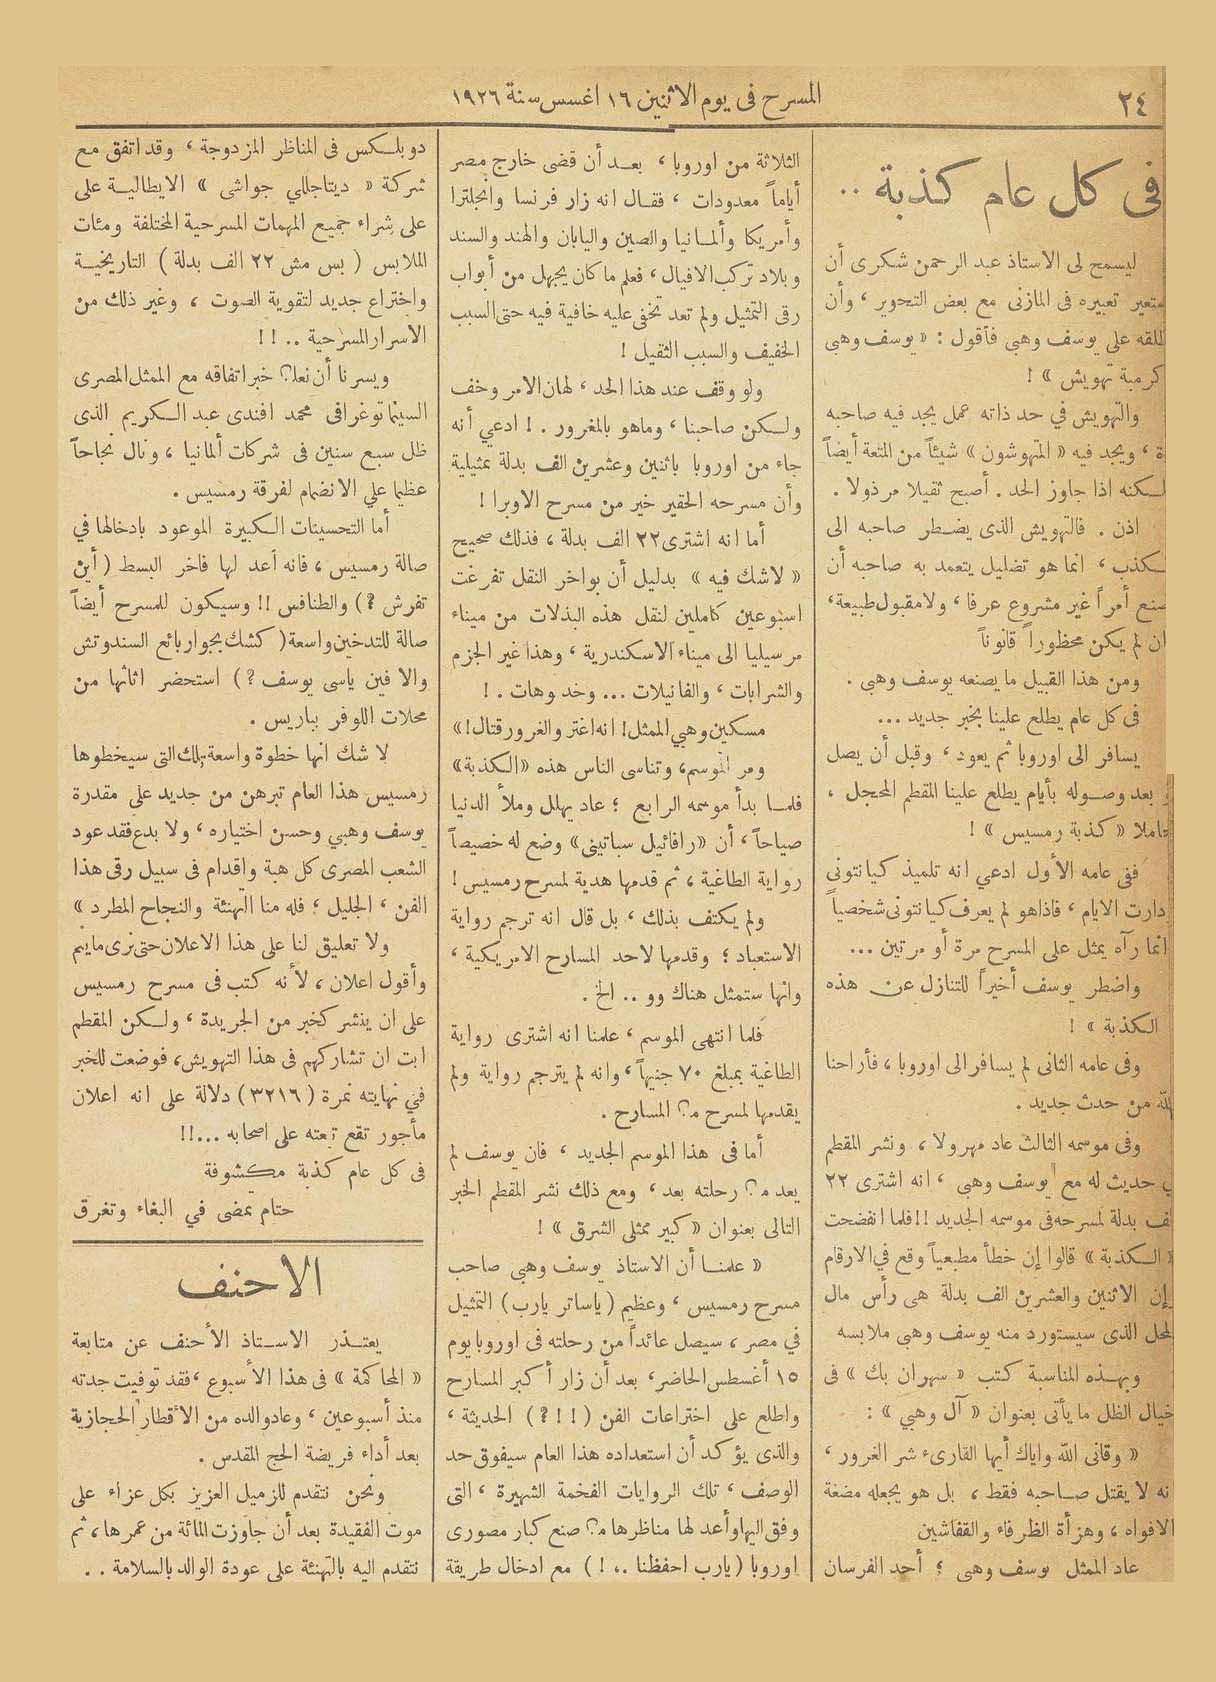 ٢٤
المسرح فى يوم الاثنين ١٦ اغسس سنة ١٩٢٦
فى كل عام كذبة ..
ليسمح لى الاستاذ عبد الرحمن شكرى أن
تعبيره فى المازنى مع بعض التحوير ، وأن
على يوسف وهبى فأقول : « يوسف وهبى
كرمبة تهويش » !
والتهويش في حد ذاته عمل يجد فيه صاحبه
ة ، ويجد فيه « المتهوشون » شيئاً من المتعة أيضاً
لكنه اذا جاوز الحد . أصبح ثقيلا مرذولا .
اذن . فالتهويش الذى يضطر صاحبه الى
كذب ، انما هو تضليل يتعمد به صاحبه أن
صنع أمراً غير مشروع عرفا ، ولا مقبول طبيعة ،
ان لم يكن محظوراً قانوناً
ومن هذا القبيل ما يصنعه يوسف وهبي .
فى كل عام يطلع علينا بخبر جديد ...
يسافر الى اوروبا ثم يعود ، وقبل أن يصل
بعد وصوله بأيام يطلع علينا المقطم المحجل ،
حاملا « كذبة رمسيس » !
ففى عامه الأول ادعي انه تلميذ كيانتونى
دارت الايام ، فاذاهو لم يعرف كيانتونى شخصياً
انما رآه يمثل على المسرح مرة أو مرتين ...
واضطر يوسف أخيراً للتنازل عن هذه
الكذبة » !
وفى عامه الثانى لم يسافر الى اوروبا ، فأراحنا
الله من حدث جديد .
وفى موسمه الثالث عاد مهرولا ، ونشر المقطم
حديث له مع يوسف وهبى ، انه اشترى ٢٢
لف بدلة لمسرحه فى موسمه الجديد !! فلما انفضحت
« الكذبة » قالوا إن خطأ مطبعياً وقع في الارقام
إن الاثنين والعشرين الف بدلة هى رأس مال
لمحل الذى سيستورد منه يوسف وهبى ملابسه
وبهذه المناسبة كتب « سهران بك » فى
خيال الظل ما يأتى بعنوان « آل وهبي » :
« وقانى الله واياك أيها القارىء شر الغرور ،
نه لا يقتل صاحبه فقط ، بل هو يجعله مضغة
الافواه ، وهزأة الظرفاء والقفاشين
عاد الممثل يوسف وهبى ؛ أحد الفرسان
الثلاثة من اوروبا ، بعد أن قضى خارج مصر
أياماً معدودات ، فقال انه زار فرنسا وانجلترا
وأمريكا وألمانيا والصين واليابان والهند والسند
وبلاد تركب الافيال ، فعلم ما كان يجهل من أبواب
رقى التمثيل ولم تعد تخفى عليه خافية فيه حتى السبب
الخفيف والسبب الثقيل !
ولو وقف عند هذا الحد ، لهان الامر وخف
ولكن صاحبنا ، وماهو بالمغرور . ! ادعي أنه
جاء من اوروبا باثنين وعشرين الف بدلة تمثيلية
وأن مسرحه الحقير خير من مسرح الاوبرا !
أما انه اشترى ٢٢ الف بدلة ، فذلك صحيح
« لاشك فيه » بدليل أن بواخر النقل تفرغت
اسبوعين كاملين لنقل هذه البذلات من ميناء
مرسيليا الى ميناء الاسكندرية ، وهذا غير الجزم
والشرابات ، والفانيلات ... وخد وهات . !
مسكين وهبي الممثل ! انه اغتر والغرور قتال ! »
ومر الموسم ، وتناسى الناس هذه « الكذبة »
فلما بدأ موسمه الرابع ؛ عاد يهلل وملأ الدنيا
صياحاً ، أن « رافائيل سباتينى » وضع له خصيصاً
رواية الطاغية ، ثم قدمها هدية لمسرح رمسيس !
ولم يكتف بذلك ، بل قال انه ترجم رواية
الاستعباد ؛ وقدمها لاحد المسارح الامريكية ،
وانها ستمثل هناك وو .. الخ .
فلما انتهى الموسم ، علمنا انه اشترى رواية
الطاغية بمبلغ ٧٠ جنيهاً ، وانه لم يترجم رواية ولم
يقدمها لمسرح من المسارح .
أما فى هذا الموسم الجديد ، فان يوسف لم
يعد من رحلته بعد ، ومع ذلك نشر المقطم الخبر
التالى بعنوان « كبير ممثلى الشرق » !
« علمنا أن الاستاذ يوسف وهبى صاحب
مسرح رمسيس ، وعظيم ( ياساتر يارب ) التمثيل
في مصر ، سيصل عائداً من رحلته فى اوروبا يوم
١٥ أغسطس الحاضر ، بعد أن زار أكبر المسارح
واطلع على اختراعات الفن ( !!؟ ) الحديثة ،
والذى يؤكد أن استعداده هذا العام سيفوق حد
الوصف ، تلك الروايات الفخمة الشهيرة ، التى
وفق اليها وأعد لها مناظرها من صنع كبار مصورى
اوروبا ( يارب احفظنا ..! ) مع ادخال طريقة
دوبلكس فى المناظر المزدوجة ، وقد اتفق مع
شركة « ديتاجللي جواشى » الايطالية على
على شراء جميع المهمات المسرحية المختلفة ومئات
الملابس ( بس مش ٢٢ الف بدلة ) التاريخية
واختراع جديد لتقوية الصوت ، وغير ذلك من
الاسرار المسرحية .. ! !
ويسرنا أن نعلن خبر اتفاقه مع الممثل المصرى
السينما توغرافى محمد افندى عبد الكريم الذى
ظل سبع سنين فى شركات ألمانيا ، ونال نجاحاً
عظيما علي الانضمام لفرقة رمسيس .
أما التحسينات الكبيرة الموعود بادخالها في
صالة رمسيس ، فانه أعد لها فاخر البسط ( أين
تفرش ؟ ) والطنافس !! وسيكون للمسرح أيضاً
صالة للتدخين واسعة ( كشك بجوار بائع السندوتش
والا فين ياسى يوسف ? ) استحضر اثاثها من
محلات اللوفر بباريس .
لا شك انها خطوة واسعة تلك التى سيخطوها
رمسيس هذا العام تبرهن من جديد علي مقدرة
يوسف وهبي وحسن اختياره ، ولا بدع فقد عود
الشعب المصرى كل هبة واقدام فى سبيل رقى هذا
الفن ، الجليل ، فله منا الهنئة والنجاح المطرد »
ولا تعليق لنا على هذا الاعلان حتى نرى مايتم
وأقول اعلان ، لأنه كتب فى مسرح رمسيس
على ان ينشر كخبر من الجريدة ، ولكن المقطم
ابت ان تشاركهم فى هذا التهويش ، فوضعت للخبر
في نهايته نمرة ( ٣٢١٦ ) دلالة على انه اعلان
مأجور تقع تبعته على اصحابه ...!!
فى كل عام كذبة مكشوفة
حتام تمضى في البغاء وتغرق
الاحنف
يعتذر الاستاذ الأحنف عن متابعة
« المحاكمة » فى هذا الأسبوع ، فقد توفيت جدته
منذ أسبوعين ، وعاد والده من الأقطار الحجازية
بعد أداء فريضة الحج المقدس .
ونحن نتقدم للزميل العزيز بكل عزاء على
موت الفقيدة بعد أن جاوزت المائة من عمرها ، ثم
نتقدم اليه بالتهنئة على عودة الوالد بالسلامة . .